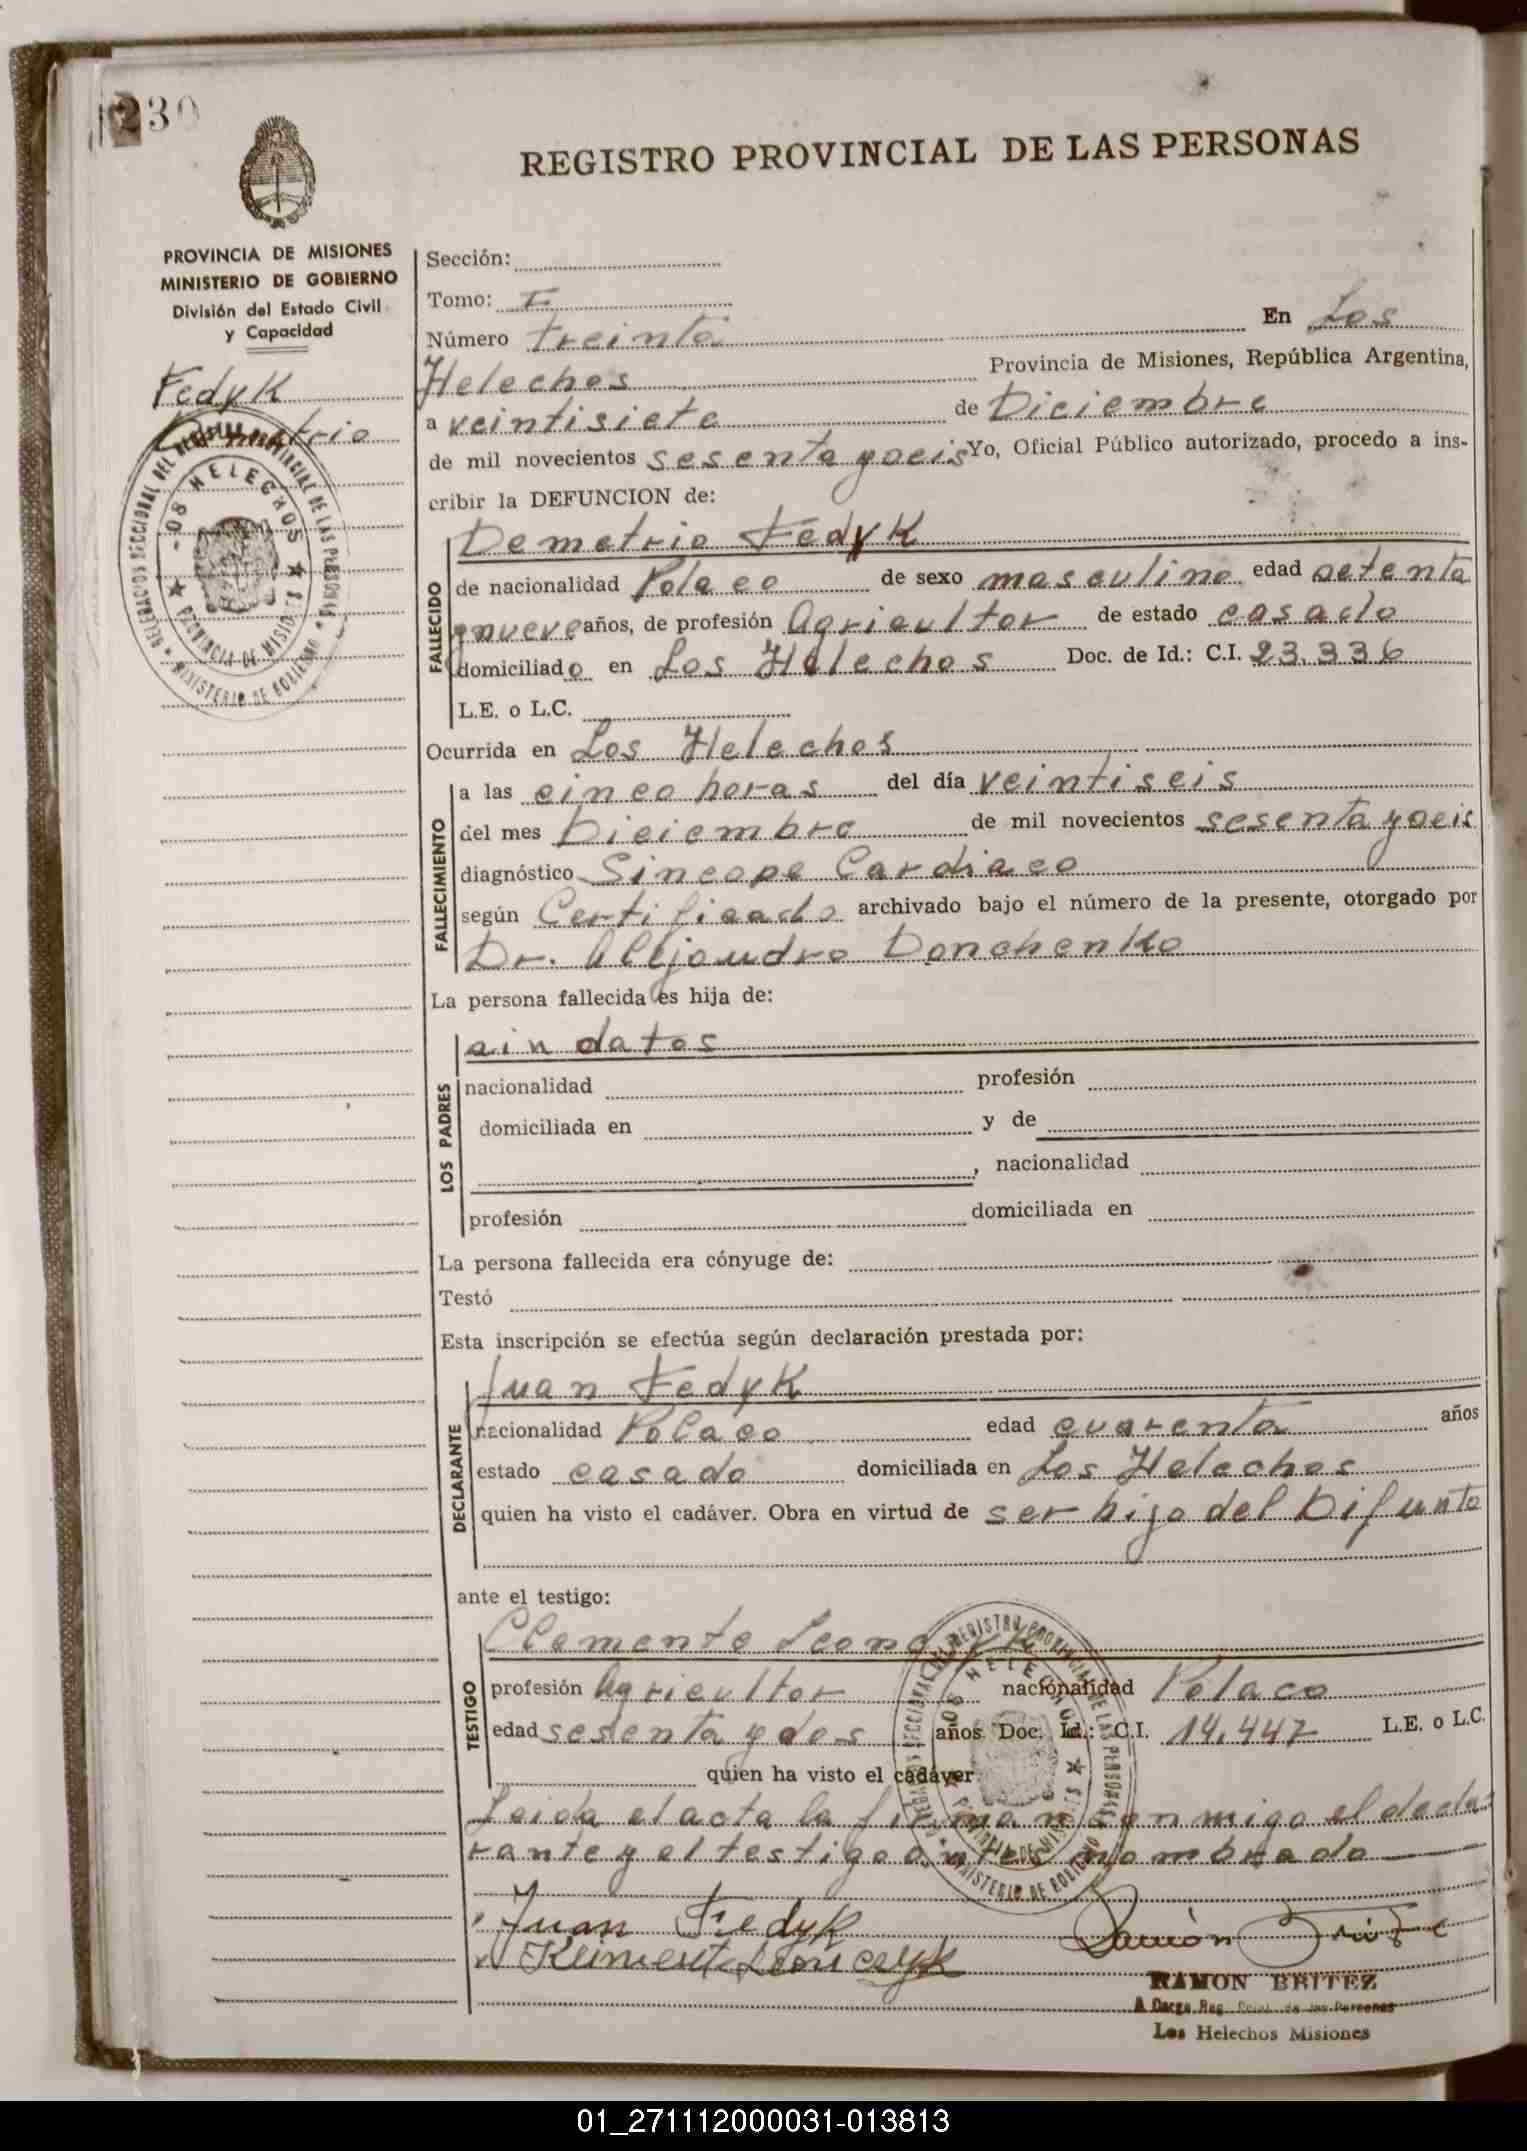 230
REGISTRO PROVINCIAL DE LAS PERSONAS
PROVINCIA DE MISIONES
MINISTERIO DE GOBIERNO
División del Estado Civil
y Capacidad
Fedyk
Demetrio
DELEGACION SECCIONAL DEL REGISTRO PROVINCIAL DE LAS PERSONAS
LOS HELECHOS
PROVINCIA DE MISIONES
MINISTERIO DE GOBIERNO
Sección:
Tomo: I
Número treinta En Los
Helechos Provincia de Misiones, República Argentina,
a veintisiete de Diciembre
de mil novecientos sesenta y seis Yo, Oficial Público autorizado, procedo a ins-
cribir la DEFUNCION de:
FALLECIDO
Demetrio Fedyk
de nacionalidad Polaco de sexo masculino edad setenta
y nueve años, de profesión Agricultor de estado casado
domiciliado en Los Helechos Doc. de Id.: C.I. 23.336
L.E. o L.C.
Ocurrida en Los Helechos
FALLECIMIENTO
a las cinco horas del día veintiseis
del mes Diciembre de mil novecientos sesenta y seis
diagnóstico Sincope Cardiaco
según Certificado archivado bajo el número de la presente, otorgado por
Dr. Alejandro Donchenko
La persona fallecida es hija de:
LOS PADRES
sin datos
nacionalidad profesión
domiciliada en y de
, nacionalidad
profesión domiciliada en
La persona fallecida era cónyuge de:
Testó
Esta inscripción se efectúa según declaración prestada por:
DECLARANTE
Juan Fedyk
nacionalidad Polaco edad cuarenta años
estado casado domiciliada en Los Helechos
quien ha visto el cadáver. Obra en virtud de ser hijo del Difunto
ante el testigo:
TESTIGO
Clemente
profesión Agricultor nacionalidad Polaco
edad sesenta y dos años. Doc. Id.: C.I. 14.447 L.E. o L.C.
quien ha visto el cadáver
Leida el acta la firman conmigo el decla-
rante y el testigo antes nombrado
Juan Fedyk
Ramón Britez
RAMON BRITEZ
A Cargo Reg. Pcial. de las Personas
Los Helechos Misiones
01_271112000031-013813